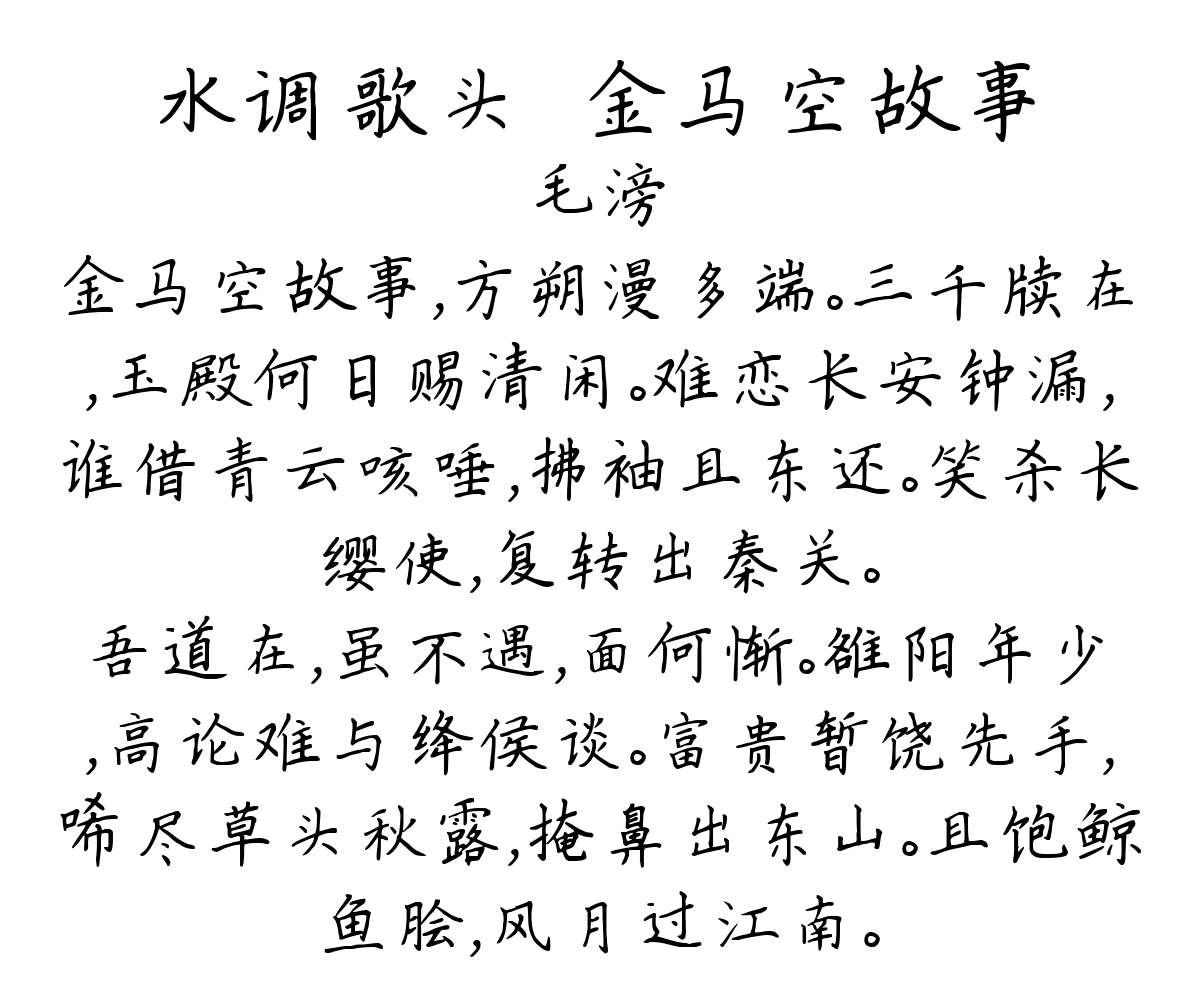 水调歌头 金马空故事
毛滂
金马空故事,方朔漫多端。三千牍在
,玉殿何日赐清闲。难恋长安钟漏,
谁借青云咳唾,拂袖且东还。笑杀长
缨使,复转出秦关。
吾道在,虽不遇,面何惭。雒阳年少
,高论难与绛侯谈。富贵暂饶先手,
唏尽草头秋露,掩鼻出东山。且饱鲸
鱼脍,风月过江南。